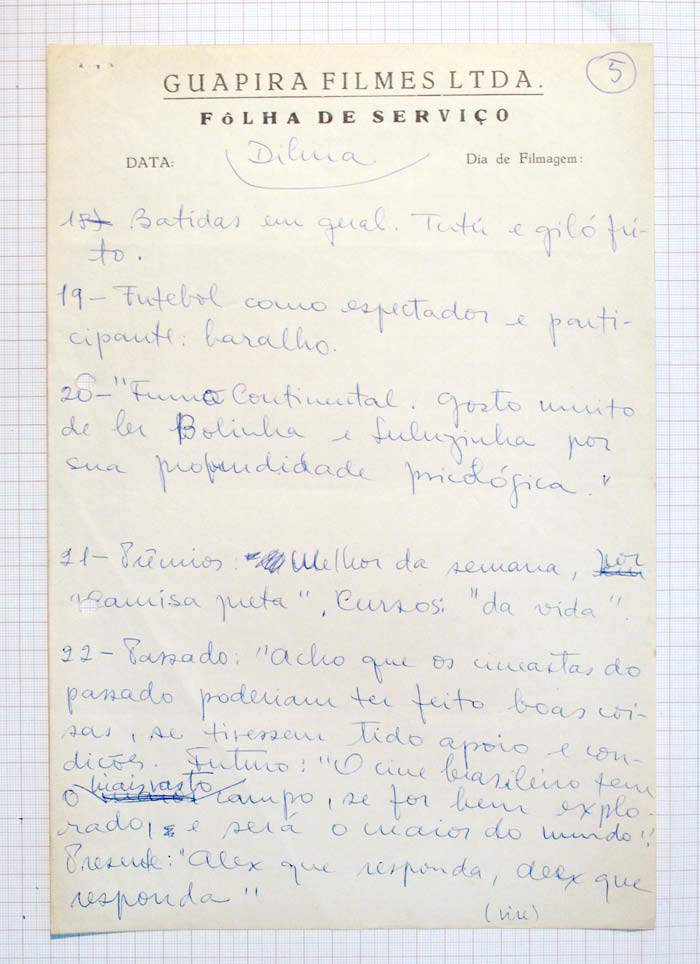 5
GUAPIRA FILMES LTDA.
FÔLHA DE SERVIÇO
DATA: Dilma Dia de Filmagem:
18) Batidas em geral. Tutú e giló fri-
to.
19- Futebol como espectador e parti-
cipante: baralho.
20- "Fumo Continental. Gosto muito
de ler Bolinha e Luluzinha por
sua profundidade psicológica."
21- Prêmios: Melhor da semana, por
"camisa preta". Cursos: "da vida".
22- Passado: "Acho que os cineastas do
passado poderiam ter feito boas coi-
sas, se tivessem tido apoio e con-
dições. Futuro: "O cine brasileiro tem
o mais vasto campo, se for bem explo-
rado, e será o maior do mundo".
Presente: "Alex que responda, Alex que
responda"